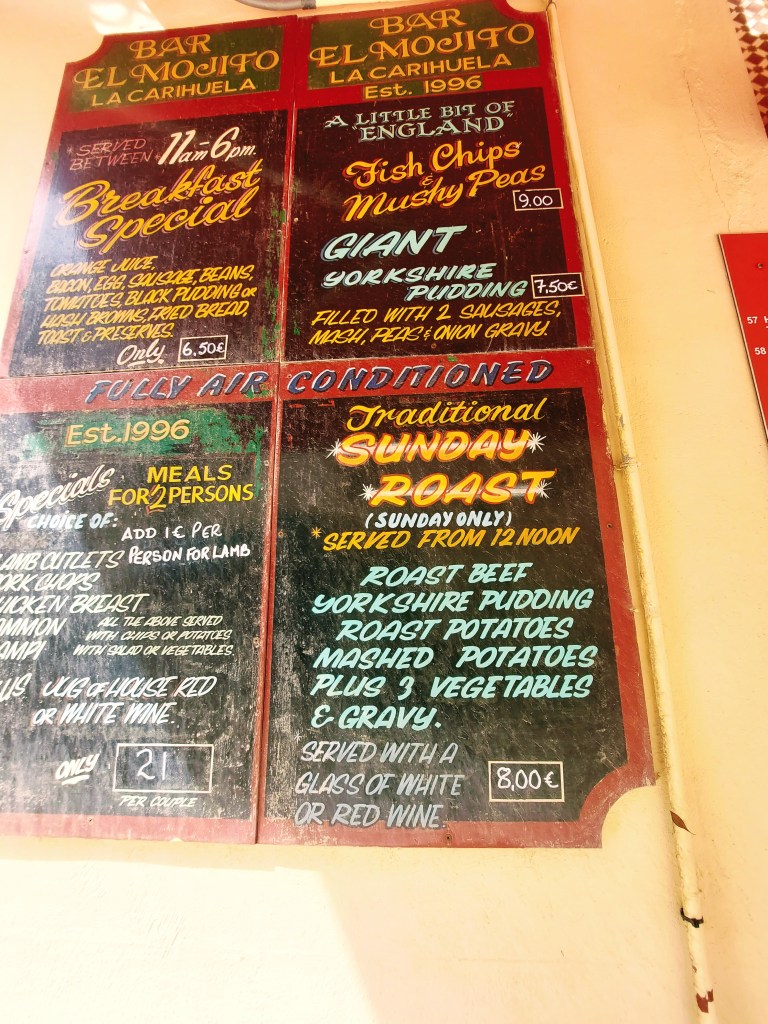 BAR
EL MOJITO
LA CARIHUELA
*SERVED
BETWEEN 11am-6pm.
Breakfast
Special
ORANGE JUICE,
BACON, EGG, SAUSAGE, BEANS,
TOMATOES, BLACK PUDDING OR
HASH BROWNS, FRIED BREAD,
TOAST & PRESERVES.
Only 6.50€
BAR
EL MOJITO
LA CARIHUELA
Est. 1996
A LITTLE BIT OF
"ENGLAND"
Fish Chips
& Mushy Peas
9.00
GIANT
YORKSHIRE
PUDDING 7,50€
FILLED WITH 2 SAUSAGES,
MASH, PEAS & ONION GRAVY.
FULLY AIR CONDITIONED
Est. 1996
Specials MEALS
FOR 2 PERSONS
CHOICE OF:
ADD 1€ PER
PERSON FOR LAMB
LAMB CUTLETS
PORK CHOPS
CHICKEN BREAST
GAMMON
ALL THE ABOVE SERVED
WITH CHIPS OR POTATOES
WITH SALAD OR VEGETABLES.
JUG OF HOUSE RED
OR WHITE WINE.
ONLY 21
PER COUPLE
Traditional
*SUNDAY*
*ROAST*
(SUNDAY ONLY)
*SERVED FROM 12 NOON
ROAST BEEF
YORKSHIRE PUDDING
ROAST POTATOES
MASHED POTATOES
PLUS 3 VEGETABLES
& GRAVY.
SERVED WITH A
GLASS OF WHITE
OR RED WINE.
8,00€
57
58